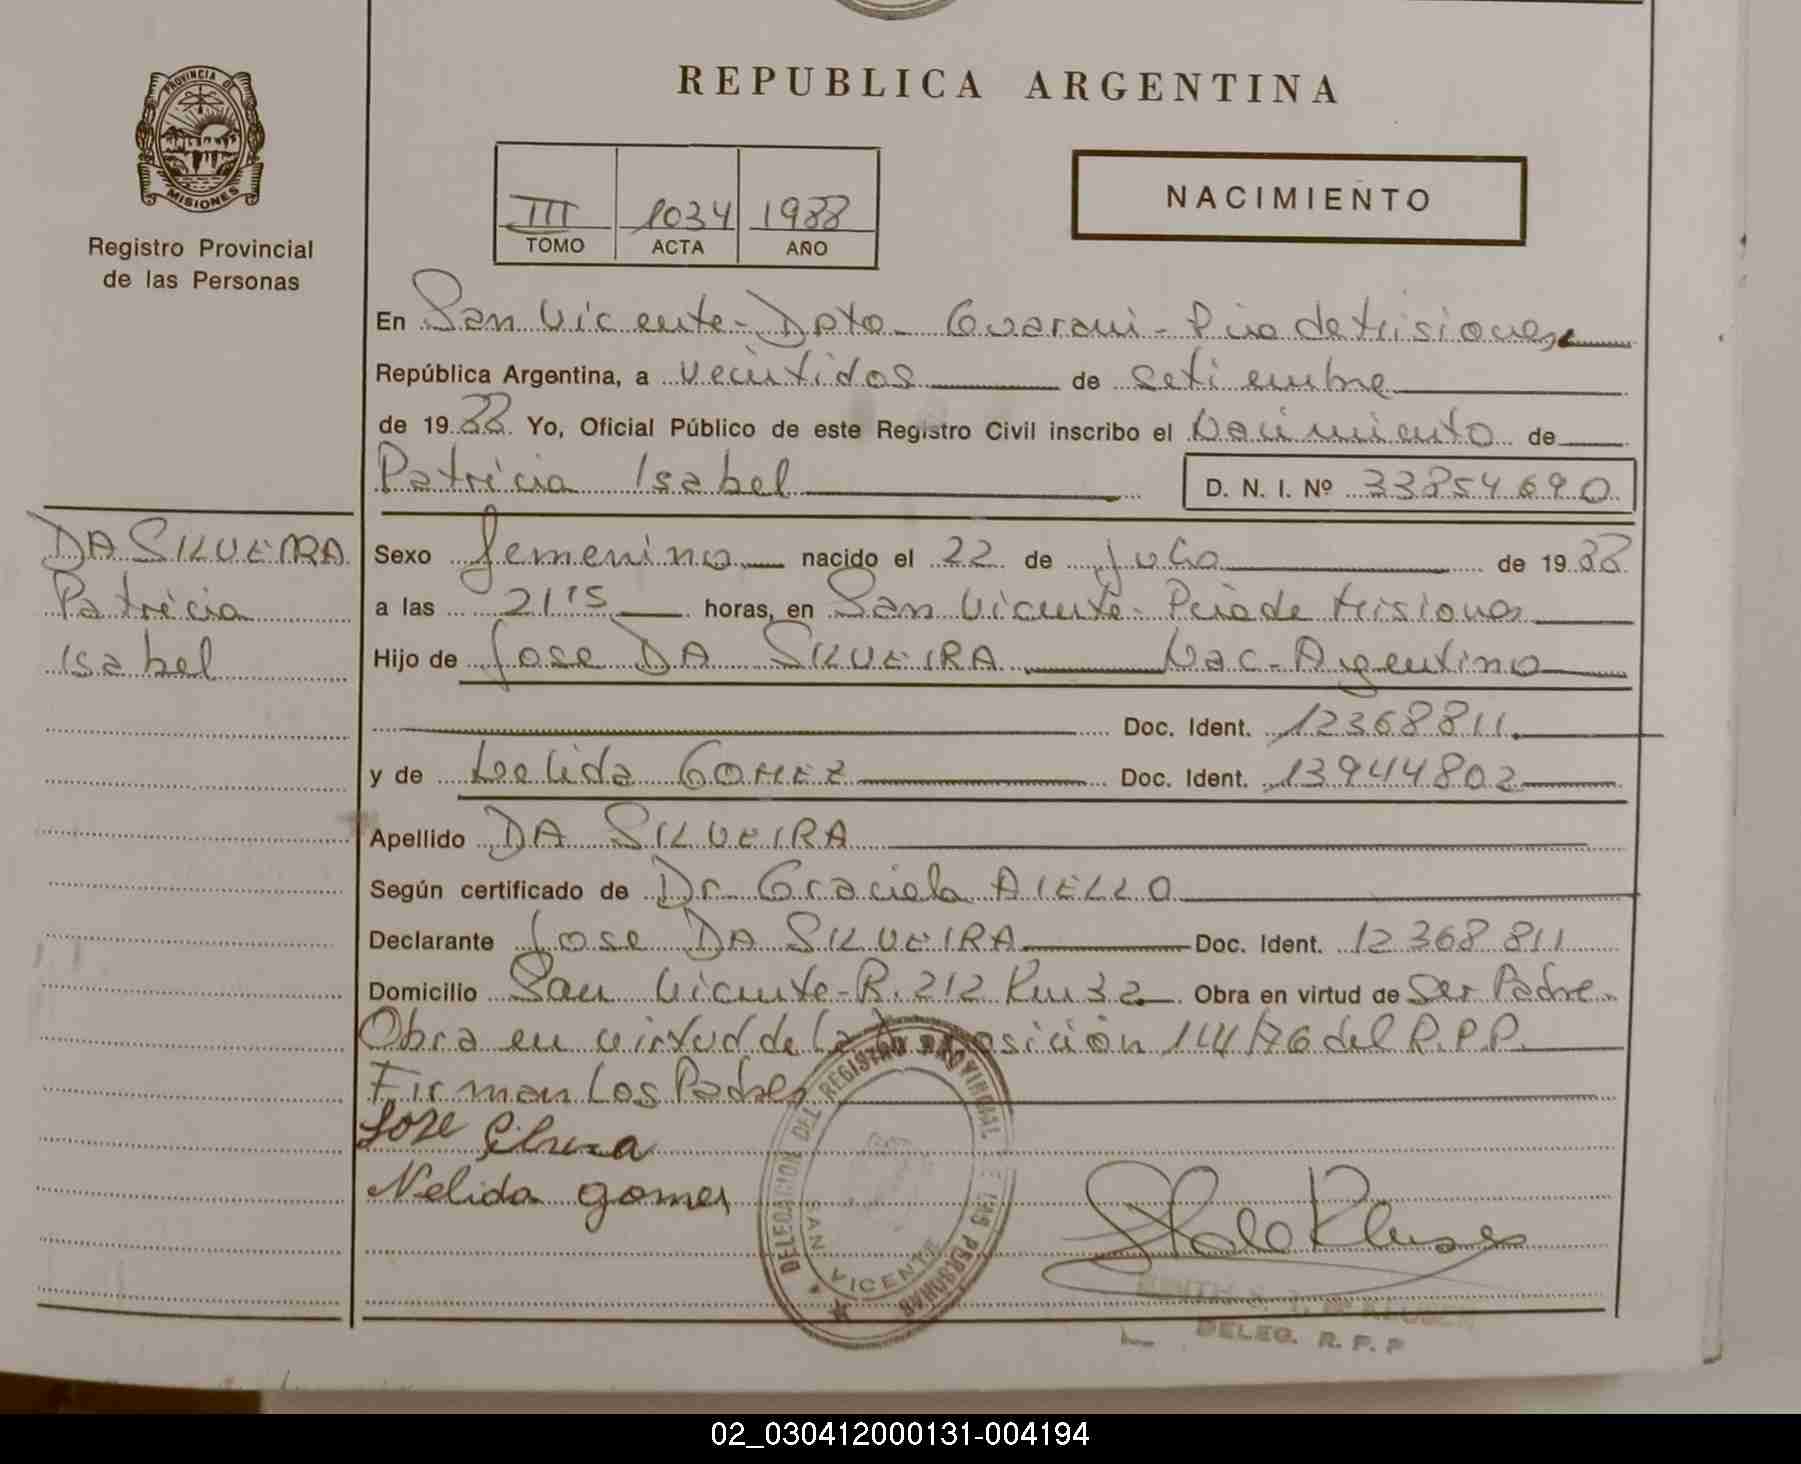 REPUBLICA ARGENTINA
PROVINCIA DE
MISIONES
Registro Provincial
de las Personas
III 1034 1988
TOMO ACTA AÑO
NACIMIENTO
En San Vicente - Dpto - Guarani - Pcia de Misiones
República Argentina, a veintidos de setiembre
de 1988 Yo, Oficial Público de este Registro Civil inscribo el Nacimiento de
Patricia Isabel D. N. I. Nº 33854690
DA SILVEIRA
Patricia
Isabel
Sexo femenino nacido el 22 de Julio de 1988
a las 21'15 horas, en San Vicente - Pcia de Misiones
Hijo de Jose DA SILVEIRA Nac - Argentino
Doc. Ident. 12368811.
y de Nelida GOMEZ Doc. Ident. 13944802
Apellido DA SILVEIRA
Según certificado de Dr Graciela AIELLO
Declarante Jose DA SILVEIRA Doc. Ident. 12368811
Domicilio San Vicente - R. 212 Km 32 Obra en virtud de Ser Padre.
Obra en virtud de la Disposición 114/76 del R.P.P.
Firman Los Padres
Nelida gomes
DELEGACION DEL REGISTRO PROVINCIAL DE LAS PERSONAS
SAN VICENTE
DELEG. R. P. P
02_030412000131-004194